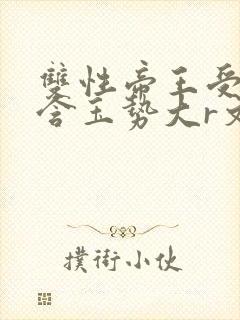 雙性帝王受
含玉勢大r文
撲街小伙